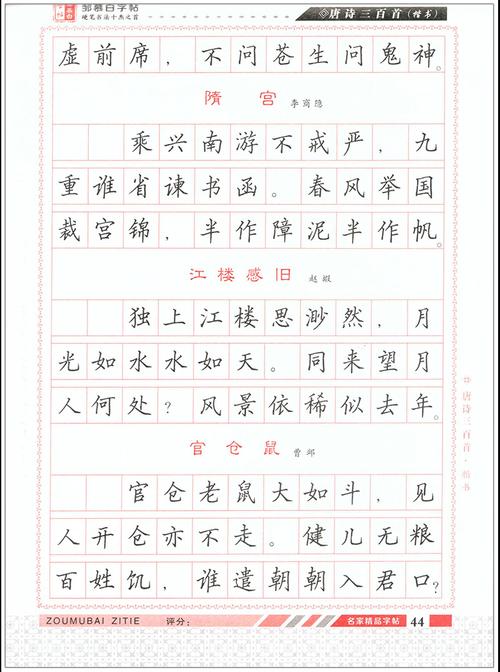 邹慕白字帖
硬笔书法十杰之首
唐诗三百首(楷书)
虚前席，不问苍生问鬼神。
隋宫 李商隐
乘兴南游不戒严，九
重谁省谏书函。春风举国
裁宫锦，半作障泥半作帆。
江楼感旧 赵嘏
独上江楼思渺然，月
光如水水如天。同来望月
人何处？风景依稀似去年。
官仓鼠 曹邺
官仓老鼠大如斗，见
人开仓亦不走。健儿无粮
百姓饥，谁遣朝朝入君口？
唐诗三百首·楷书
ZOUMUBAI ZITIE 评分： 名家精品字帖 44